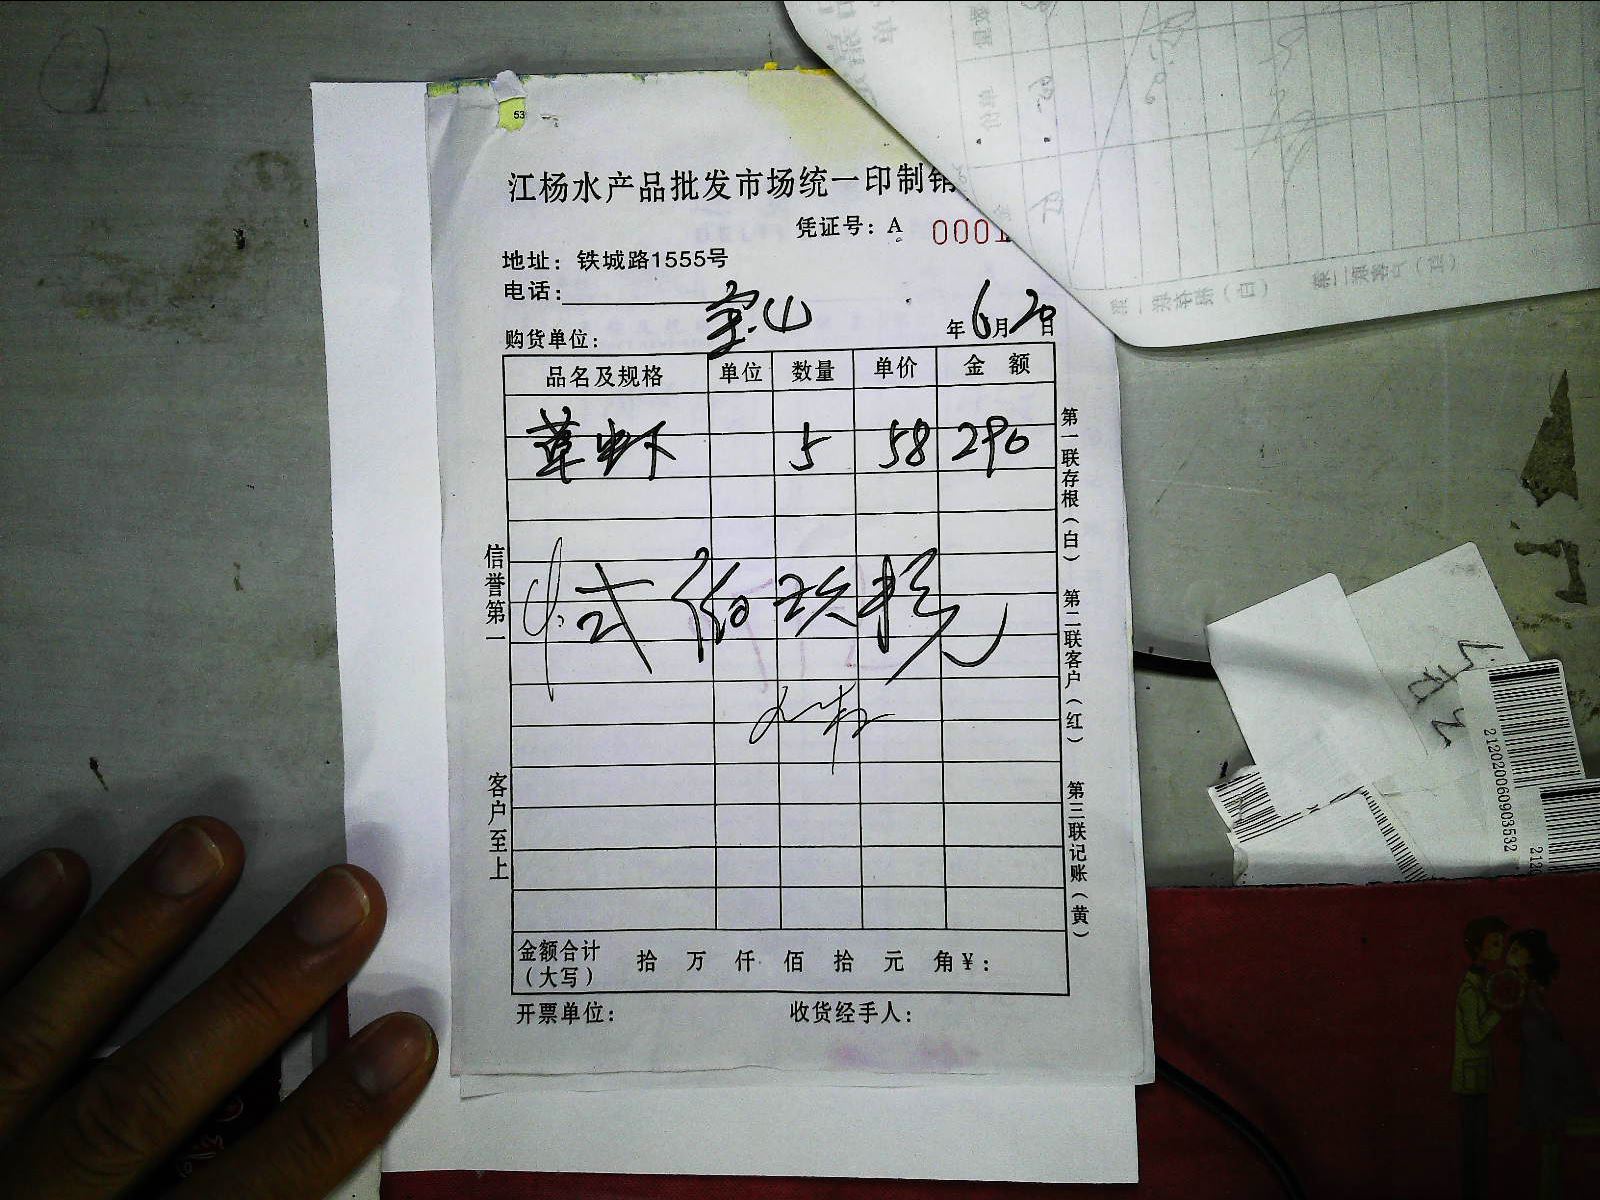 53
江杨水产品批发市场统一印制销
凭证号：A 0001
地址：铁城路1555号
电话：
购货单位： 宝山 年6月20日
品名及规格 单位 数量 单价 金 额
草虾 5 58 290
贰佰玖拾元
金额合计（大写） 拾 万 仟 佰 拾 元 角￥：
开票单位： 收货经手人：
信誉第一
客户至上
第一联存根（白）
第二联客户（红）
第三联记账（黄）
2120200609035​32